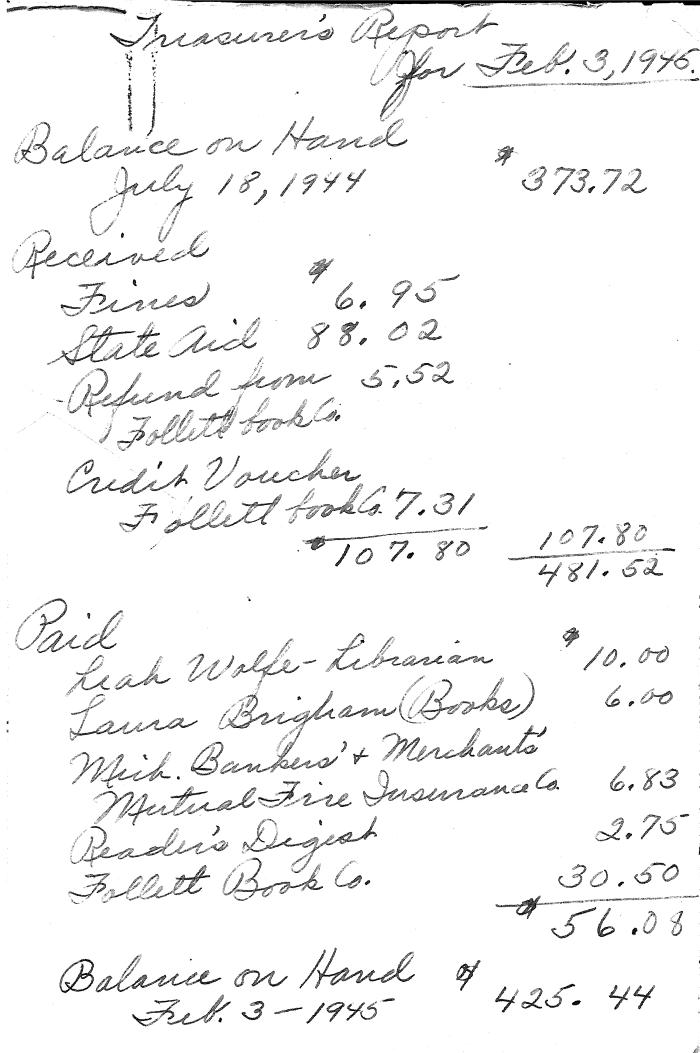 Treasurer's Report
for Feb. 3, 1945.
Balance on Hand
July 18, 1944 $373.72
Received
Fines $6.95
State Aid 88.02
Refund from 5.52
Follett book Co.
Credit Voucher
Follett book Co. 7.31
$107.80 107.80
481.52
Paid
Leah Wolfe - Librarian $10.00
Laura Brigham (Books) 6.00
Mich. Bankers' & Merchants'
Mutual Fire Insurance Co. 6.83
Reader's Digest 2.75
Follett Book Co. 30.50
$56.08
Balance on Hand $425.44
Feb. 3 - 1945